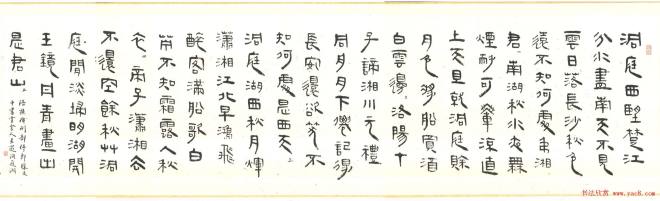 洞庭西望楚江
分水盡南天不見
雲日落長沙秋色
遠不知何處弔湘
君南湖秋水夜無
煙耐可乘流直
上天且就洞庭賒
月色將船買酒
白雲邊洛陽才
子謫湘川元禮
同舟月下僊記得
長安還欲笑不
知何處是西天
洞庭湖西秋月輝
瀟湘江北早鴻飛
醉客滿船歌白
苧不知霜露入秋
衣帝子瀟湘去
不還空餘秋草洞
庭間淡掃明湖開
玉鏡丹青畫出
是君山
陪族叔刑部侍郎曄及
中書賈舍人至遊洞庭湖
书法欣赏
www.yac8.com